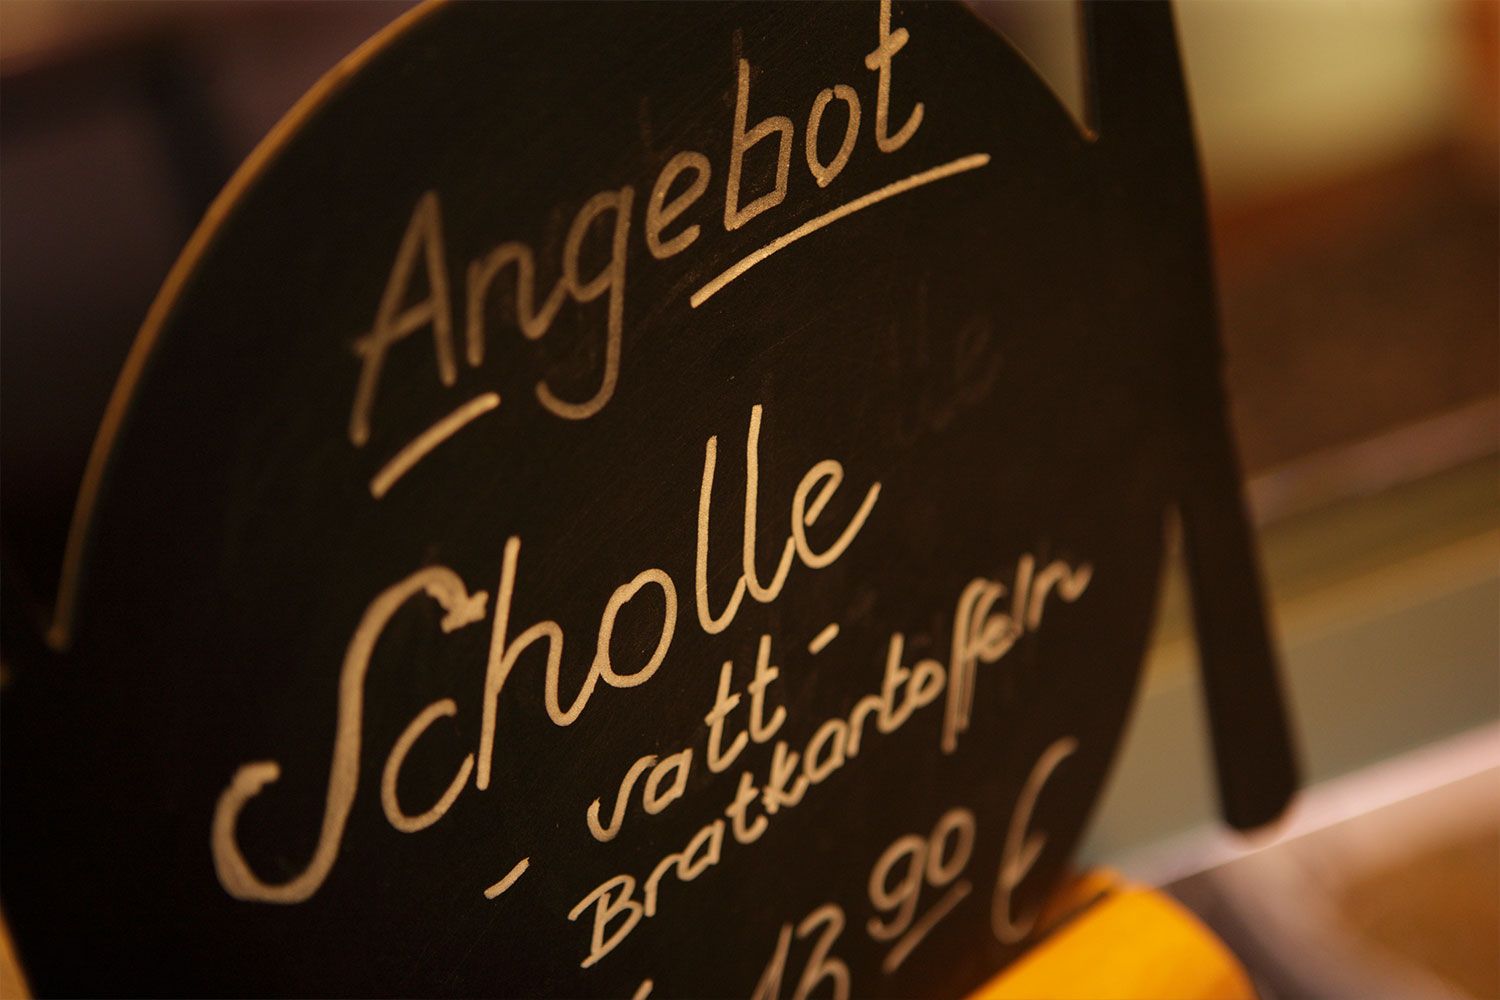 Angebot
Scholle
- satt -
Bratkartoffeln
13,90 €